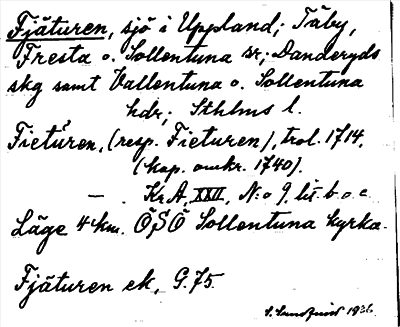 Fjäturen, sjö i Uppland; Täby,
Fresta o. Sollentuna sr; Danderyds
skg samt Vallentuna o. Sollentuna
hdr; Sthlms l.
Fieturen, (resp. Fieturen), trol. 1714,
(kop. omkr. 1740).
— . Kr.A, XXII, N:o 9, lit. b. o. c.
Läge 4 km. ÖSÖ Sollentuna kyrka.
Fjäturen ek, G. 75.
1936